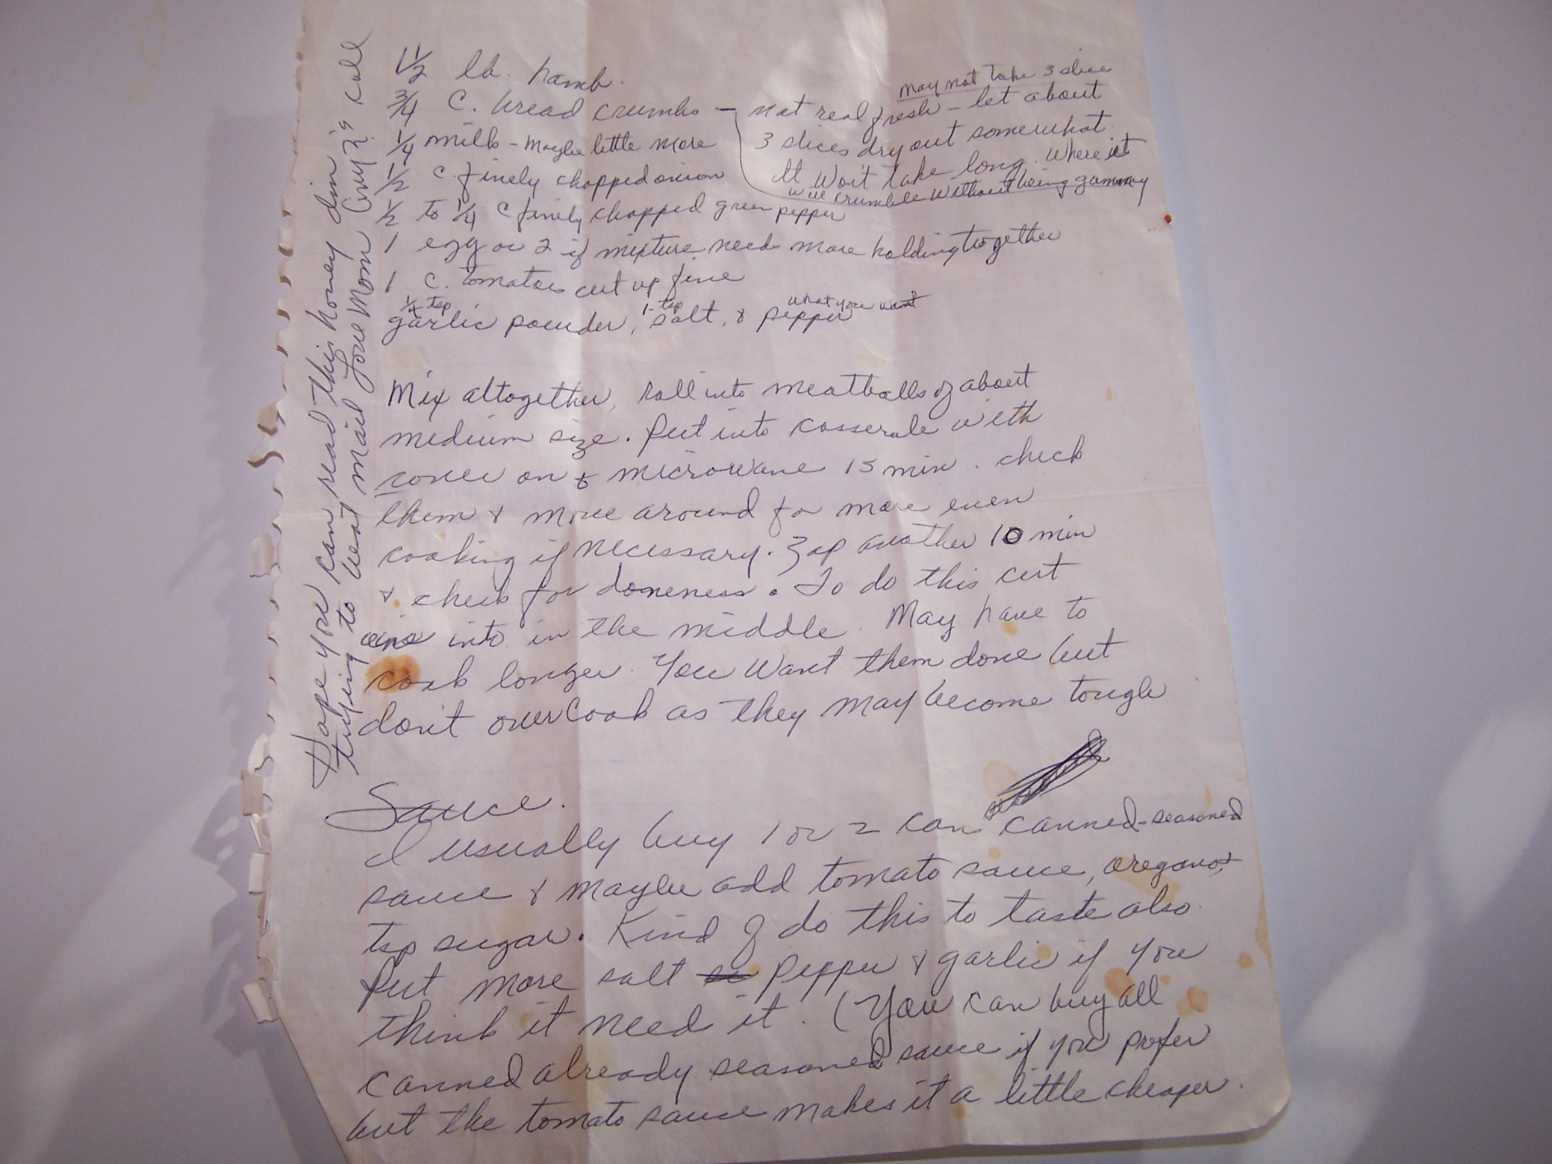 1 1/2 lb. hamb.
3/4 C. bread crumbs - not real fresh - let about
may not take 3 slice
3 slices dry out somewhat.
It won't take long. Where it
will crumble without being gummy
1/4 milk - maybe little more
1/2 c finely chopped onion
1/2 to 1/4 c finely chopped green pepper
1 egg or 2 if mixture needs more holding together
1 c. tomatoes cut up fine
1/4 tsp 1 tsp what you want
garlic powder, salt, & pepper
Mix altogether, roll into meatballs of about
medium size. Put into casserole with
cover on & microwave 15 min. check
them & move around for more even
cooking if necessary. Zap another 10 min
& check for doneness. To do this cut
one into in the middle. May have to
cook longer. You want them done but
don't overcook as they may become tough
Sauce.
I usually buy 1 or 2 can canned-seasoned
sauce & maybe add tomato sauce, oregano,
tsp sugar. Kind of do this to taste also
Put more salt pepper & garlic if you
think it need it. (You can buy all
canned already seasoned sauce if you prefer
but the tomato sauce makes it a little cheaper.
Hope you can read this honey I'm
trying to beat mail Love Mom Any ?'s call